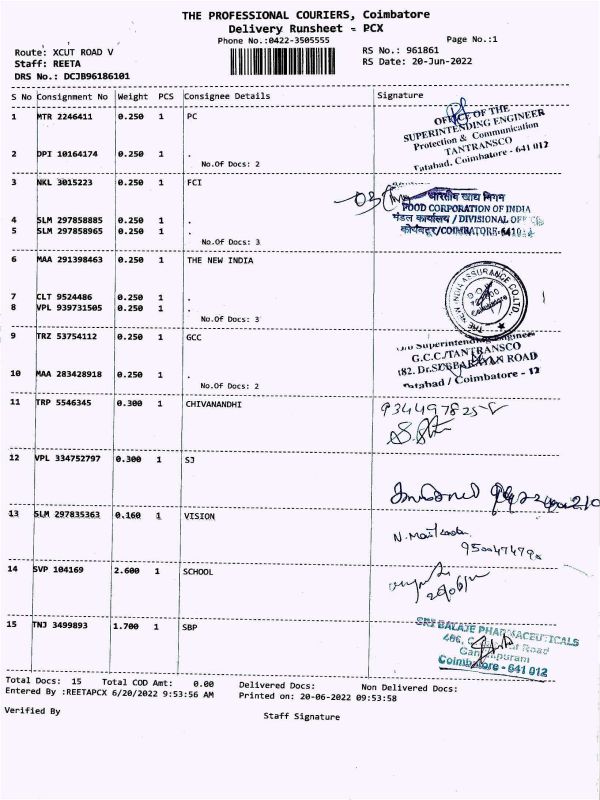 THE PROFESSIONAL COURIERS, Coimbatore
Delivery Runsheet - PCX
Phone No.:0422-3505555 Page No.:1
Route: XCUT ROAD V RS No.: 961861
Staff: REETA RS Date: 20-Jun-2022
DRS No.: DCJB96186101
S No Consignment No Weight PCS Consignee Details Signature
1 MTR 2246411 0.250 1 PC
OFFICE OF THE
SUPERINTENDING ENGINEER
Protection & Communication
TANTRANSCO
Tatabad, Coimbatore - 641 012
2 DPI 10164174 0.250 1 .
No.Of Docs: 2
3 NKL 3015223 0.250 1 FCI
भारतीय खाद्य निगम
FOOD CORPORATION OF INDIA
मंडल कार्यालय / DIVISIONAL OFFICE
कोयंबटूर/COIMBATORE-6410
4 SLM 297858885 0.250 1 .
5 SLM 297858965 0.250 1 .
No.Of Docs: 3
6 MAA 291398463 0.250 1 THE NEW INDIA
THE NEW INDIA ASSURANCE CO.LTD.
7 CLT 9524486 0.250 1 .
8 VPL 939731505 0.250 1 .
No.Of Docs: 3
9 TRZ 53754112 0.250 1 GCC
O/o Superintending Engineer
G.C.C./TANTRANSCO
182. Dr.SUBBARAYAN ROAD
Tatabad / Coimbatore - 12
10 MAA 283428918 0.250 1 .
No.Of Docs: 2
11 TRP 5546345 0.300 1 CHIVANANDHI
12 VPL 334752797 0.300 1 SJ
13 SLM 297835363 0.160 1 VISION
14 SVP 104169 2.600 1 SCHOOL
15 TNJ 3499893 1.700 1 SBP
SRI BALAJE PHARMACEUTICALS
Road
Coimbatore - 641 012
Total Docs: 15 Total COD Amt: 0.00 Delivered Docs: Non Delivered Docs:
Entered By :REETAPCX 6/20/2022 9:53:56 AM Printed on: 20-06-2022 09:53:58
Verified By Staff Signature